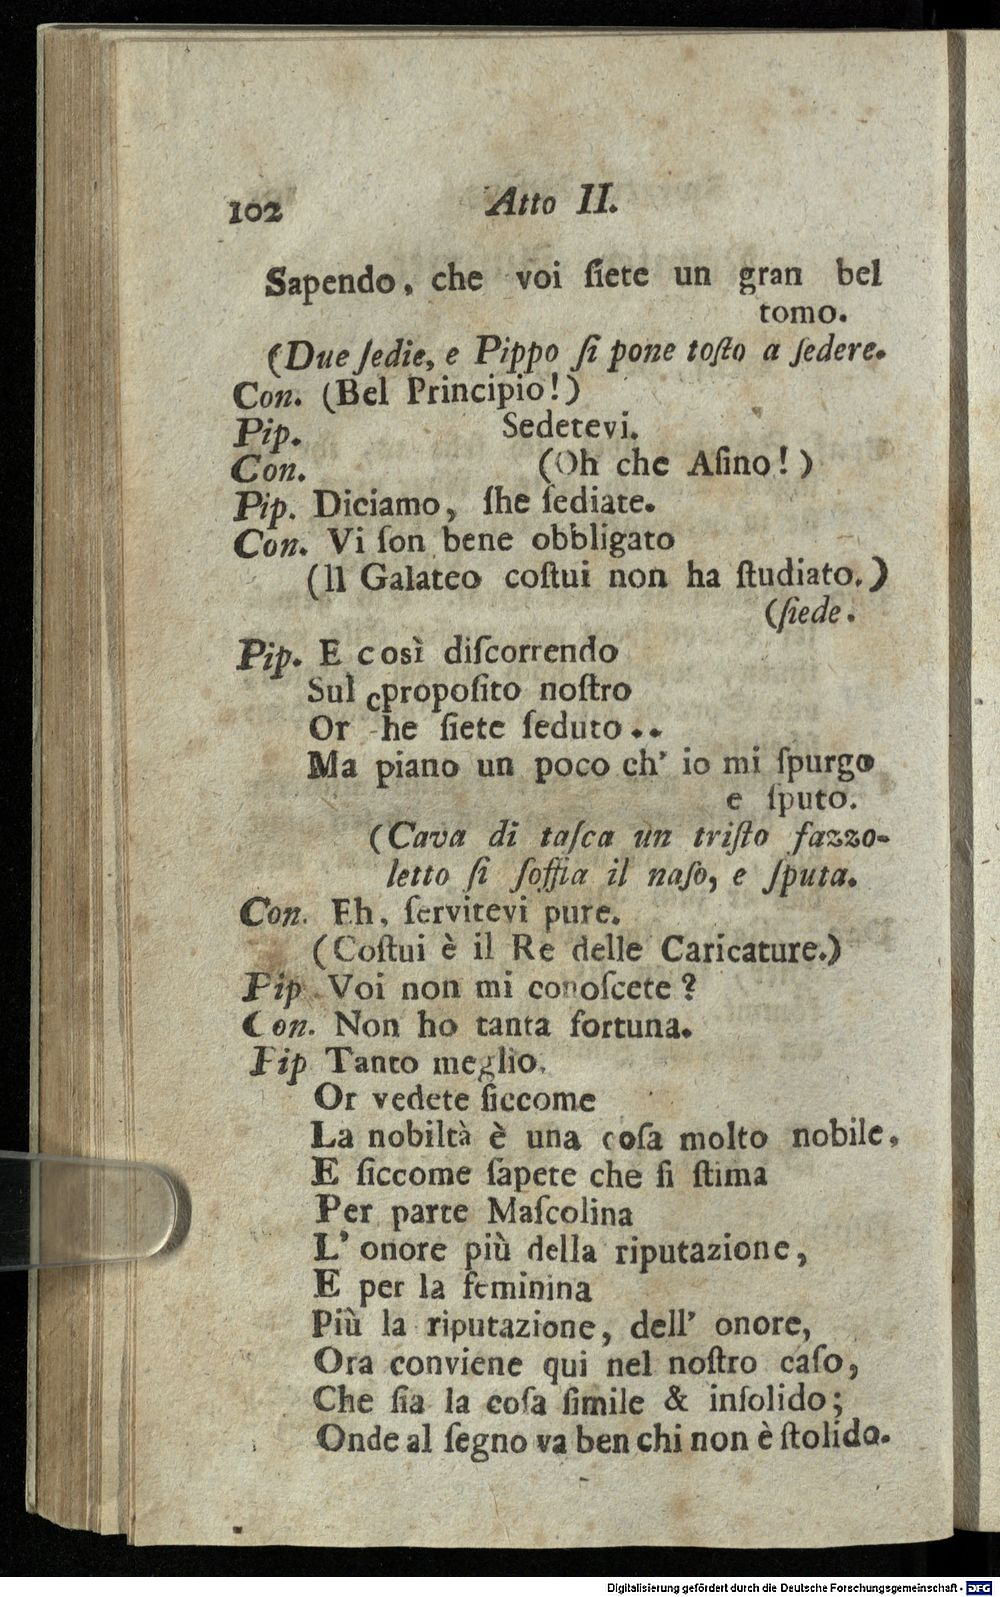 102 Atto II.
Sapendo, che voi ſiete un gran bel
tomo.
(Due ſedie, e Pippo ſi pone toſto a ſedere.
Con. (Bel Principio!)
Pip. Sedetevi.
Con. (Oh che Aſino!)
Pip. Diciamo, ſhe ſediate.
Con. Vi ſon bene obbligato
(Il Galateo coſtui non ha ſtudiato.)
(ſiede.
Pip. E così diſcorrendo
Sul propoſito noſtro
Or che ſiete ſeduto..
Ma piano un poco ch' io mi ſpurgo
e ſputo.
(Cava di taſca un triſto fazzo-
letto ſi ſoffia il naſo, e ſputa.
Con. Eh, ſervitevi pure.
(Coſtui è il Re delle Caricature.)
Pip. Voi non mi conoſcete?
Con. Non ho tanta fortuna.
Pip Tanto meglio.
Or vedete ſiccome
La nobiltà è una coſa molto nobile,
E ſiccome ſapete che ſi ſtima
Per parte Maſcolina
L' onore più della riputazione,
E per la feminina
Più la riputazione, dell' onore,
Ora conviene qui nel noſtro caſo,
Che ſia la coſa ſimile & inſolido;
Onde al ſegno va ben chi non è ſtolido.
Digitalisierung gefördert durch die Deutsche Forschungsgemeinschaft - DFG